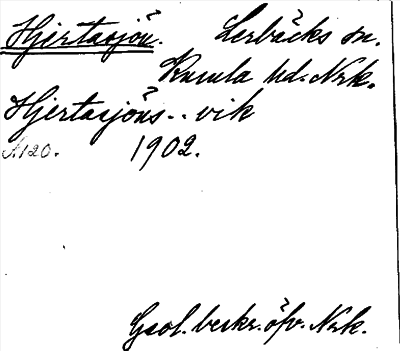 Hjertasjön. Lerbäcks sn.
Kumla hd. Nrk.
Hjertasjöns-- vik
A.120. 1902.
Geol. beskr. öfv. Nrk.